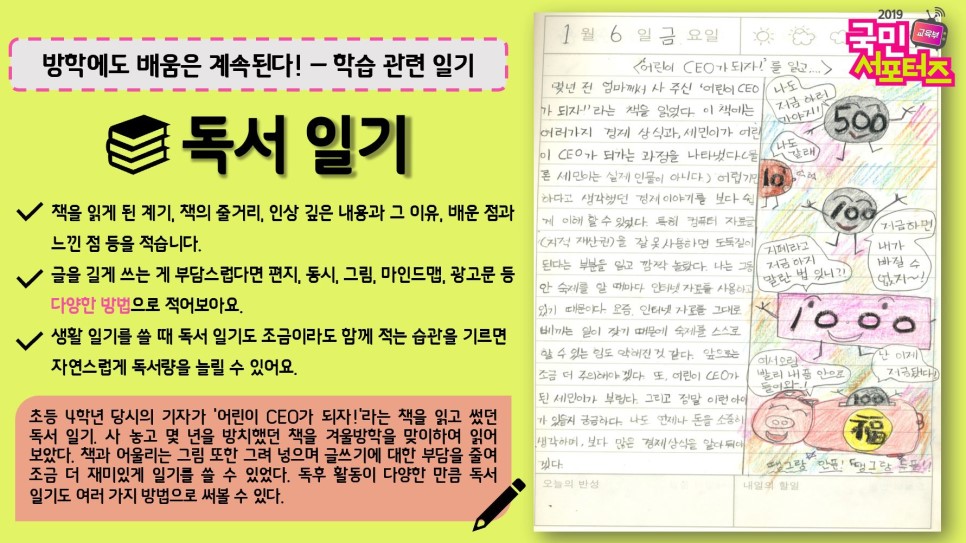 방학에도 배움은 계속된다! – 학습 관련 일기
독서 일기
책을 읽게 된 계기, 책의 줄거리, 인상 깊은 내용과 그 이유, 배운 점과
느낀 점 등을 적습니다.
글을 길게 쓰는 게 부담스럽다면 편지, 동시, 그림, 마인드맵, 광고문 등
다양한 방법으로 적어보아요.
생활 일기를 쓸 때 독서 일기도 조금이라도 함께 적는 습관을 기르면
자연스럽게 독서량을 늘릴 수 있어요.
초등 4학년 당시의 기자가 '어린이 CEO가 되자!'라는 책을 읽고 썼던
독서 일기. 사 놓고 몇 년을 방치했던 책을 겨울방학을 맞이하여 읽어
보았다. 책과 어울리는 그림 또한 그려 넣으며 글쓰기에 대한 부담을 줄여
조금 더 재미있게 일기를 쓸 수 있었다. 독후 활동이 다양한 만큼 독서
일기도 여러 가지 방법으로 써볼 수 있다.
2019
교육부
국민
서포터즈
1월 6일 금요일
<'어린이 CEO가 되자!'를 읽고...>
몇년 전 엄마께서 사 주신 '어린이 CEO
가 되자!'라는 책을 읽었다. 이 책에는
여러가지 경제 상식과, 세민이가 어린
이 CEO가 되가는 과정을 나타냈다(물
론 세민이는 실제 인물이 아니다.) 어렵기만
하다고 생각했던 경제이야기를 보다 쉽
게 이해 할 수 있었다. 특히 컴퓨터 자료를
(지적 재산권)을 잘 못 사용하면 도둑질이
된다는 부분을 읽고 깜짝 놀랐다. 나는 그동
안 숙제를 할 때마다 인터넷 자료를 사용하고
있기 때문이다. 요즘, 인터넷 자료를 그대로
베끼는 일이 잦기 때문에 숙제를 스스로
할 수 있는 힘도 약해진 것 같다. 앞으로는
조금 더 주의해야 겠다. 또, 어린이 CEO가
된 세민이가 부럽다. 그리고 정말 이런 아이
가 있을지 궁금하다. 나도 언제나 돈을 소중히
생각하며, 보다 많은 경제상식을 알아 둬야
겠다.
오늘의 반성
내일의 할일
나도
저금 하러
가야지!!
500
나도
갈래!
10
100
저금하면
내가
바질 수
없지~!
지폐라고
저금 하지
말란 법 있니?!
1000
어서오렴
빨리 내 품 안으로
들어와~!
난 이제
저금됐다!
100
福